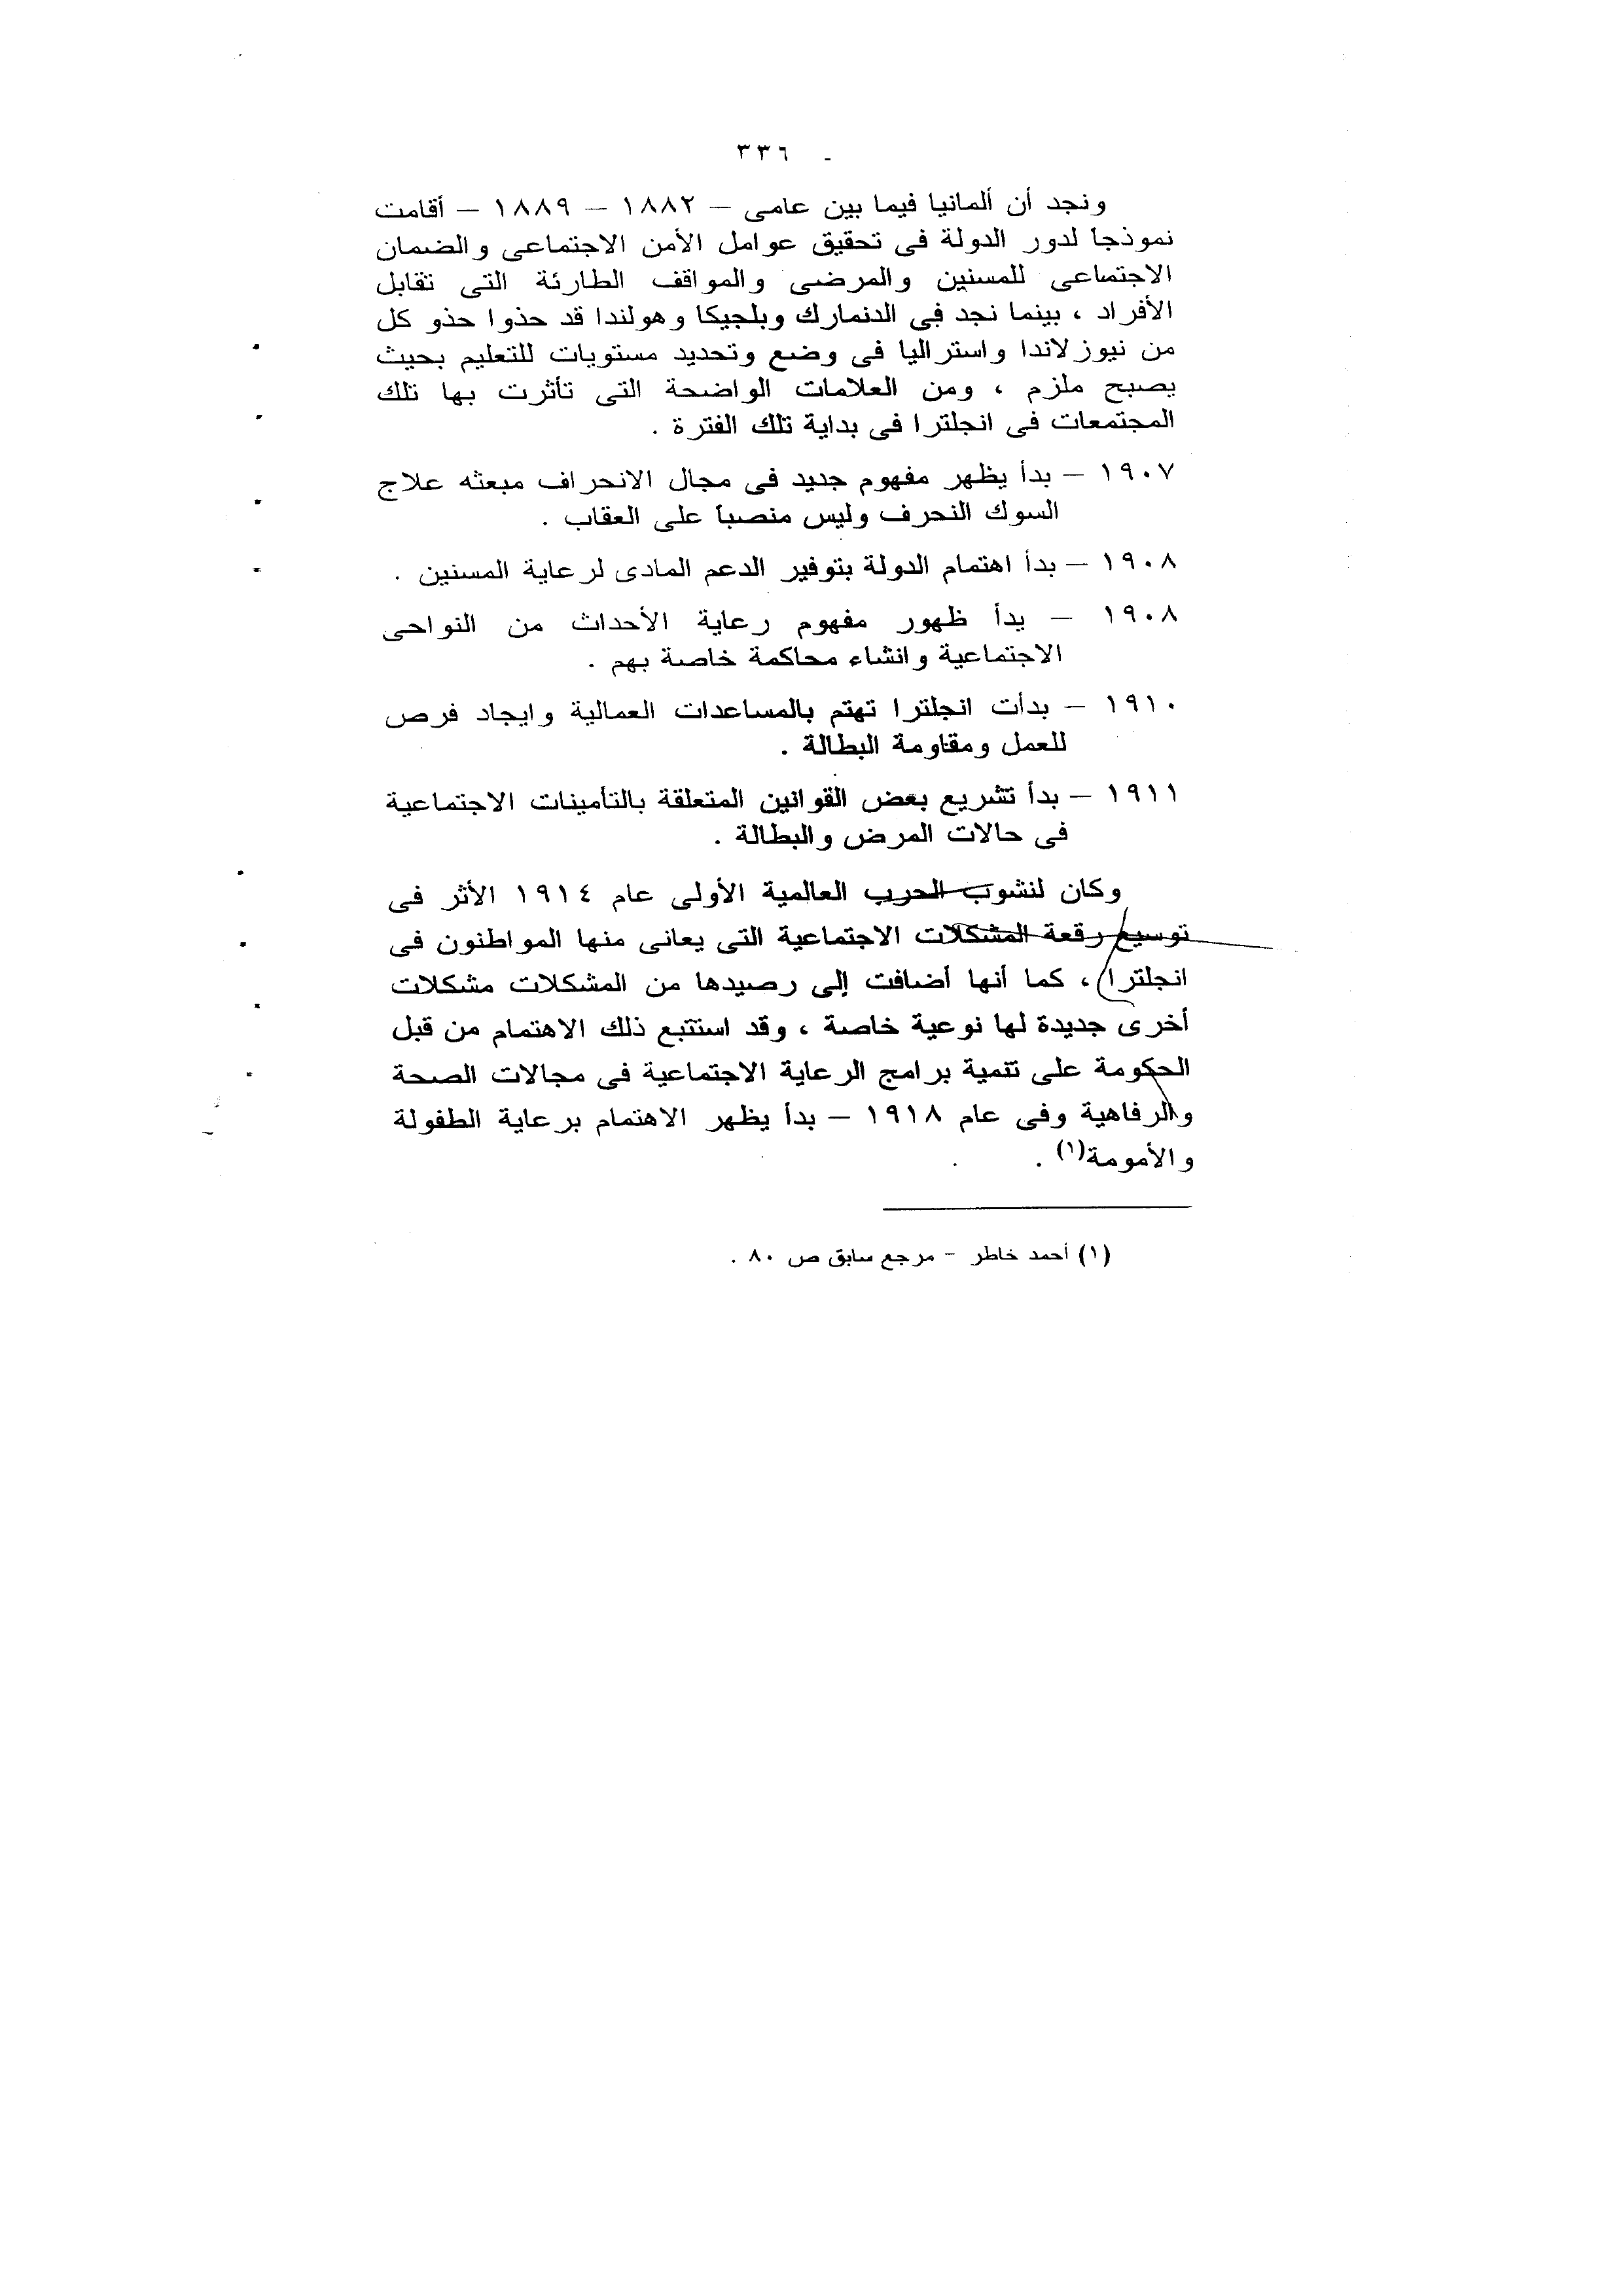 - ٣٣٦
ونجد أن ألمانيا فيما بين عامى – ١٨٨٢ – ١٨٨٩ – أقامت
نموذجاً لدور الدولة فى تحقيق عوامل الأمن الاجتماعى والضمان
الاجتماعى للمسنين والمرضى والمواقف الطارئة التى تقابل
الأفراد ، بينما نجد فى الدنمارك وبلجيكا وهولندا قد حذوا حذو كل
من نيوزلاندا واستراليا فى وضع وتحديد مستويات للتعليم بحيث
يصبح ملزم ، ومن العلامات الواضحة التى تأثرت بها تلك
المجتمعات فى انجلترا فى بداية تلك الفترة .
١٩٠٧ – بدأ يظهر مفهوم جديد فى مجال الانحراف مبعثه علاج
السوك النحرف وليس منصباً على العقاب .
١٩٠٨ – بدأ اهتمام الدولة بتوفير الدعم المادى لرعاية المسنين .
١٩٠٨ – بدأ ظهور مفهوم رعاية الأحداث من النواحى
الاجتماعية وانشاء محاكمة خاصة بهم .
١٩١٠ – بدأت انجلترا تهتم بالمساعدات العمالية وايجاد فرص
للعمل ومقاومة البطالة .
١٩١١ – بدأ تشريع بعض القوانين المتعلقة بالتأمينات الاجتماعية
فى حالات المرض والبطالة .
وكان لنشوب الحرب العالمية الأولى عام ١٩١٤ الأثر فى
توسيع رقعة المشكلات الاجتماعية التى يعانى منها المواطنون فى
انجلترا ، كما أنها أضافت إلى رصيدها من المشكلات مشكلات
أخرى جديدة لها نوعية خاصة ، وقد استتبع ذلك الاهتمام من قبل
الحكومة على تنمية برامج الرعاية الاجتماعية فى مجالات الصحة
والرفاهية وفى عام ١٩١٨ – بدأ يظهر الاهتمام برعاية الطفولة
والأمومة(١) .
(١) أحمد خاطر – مرجع سابق ص ٨٠ .